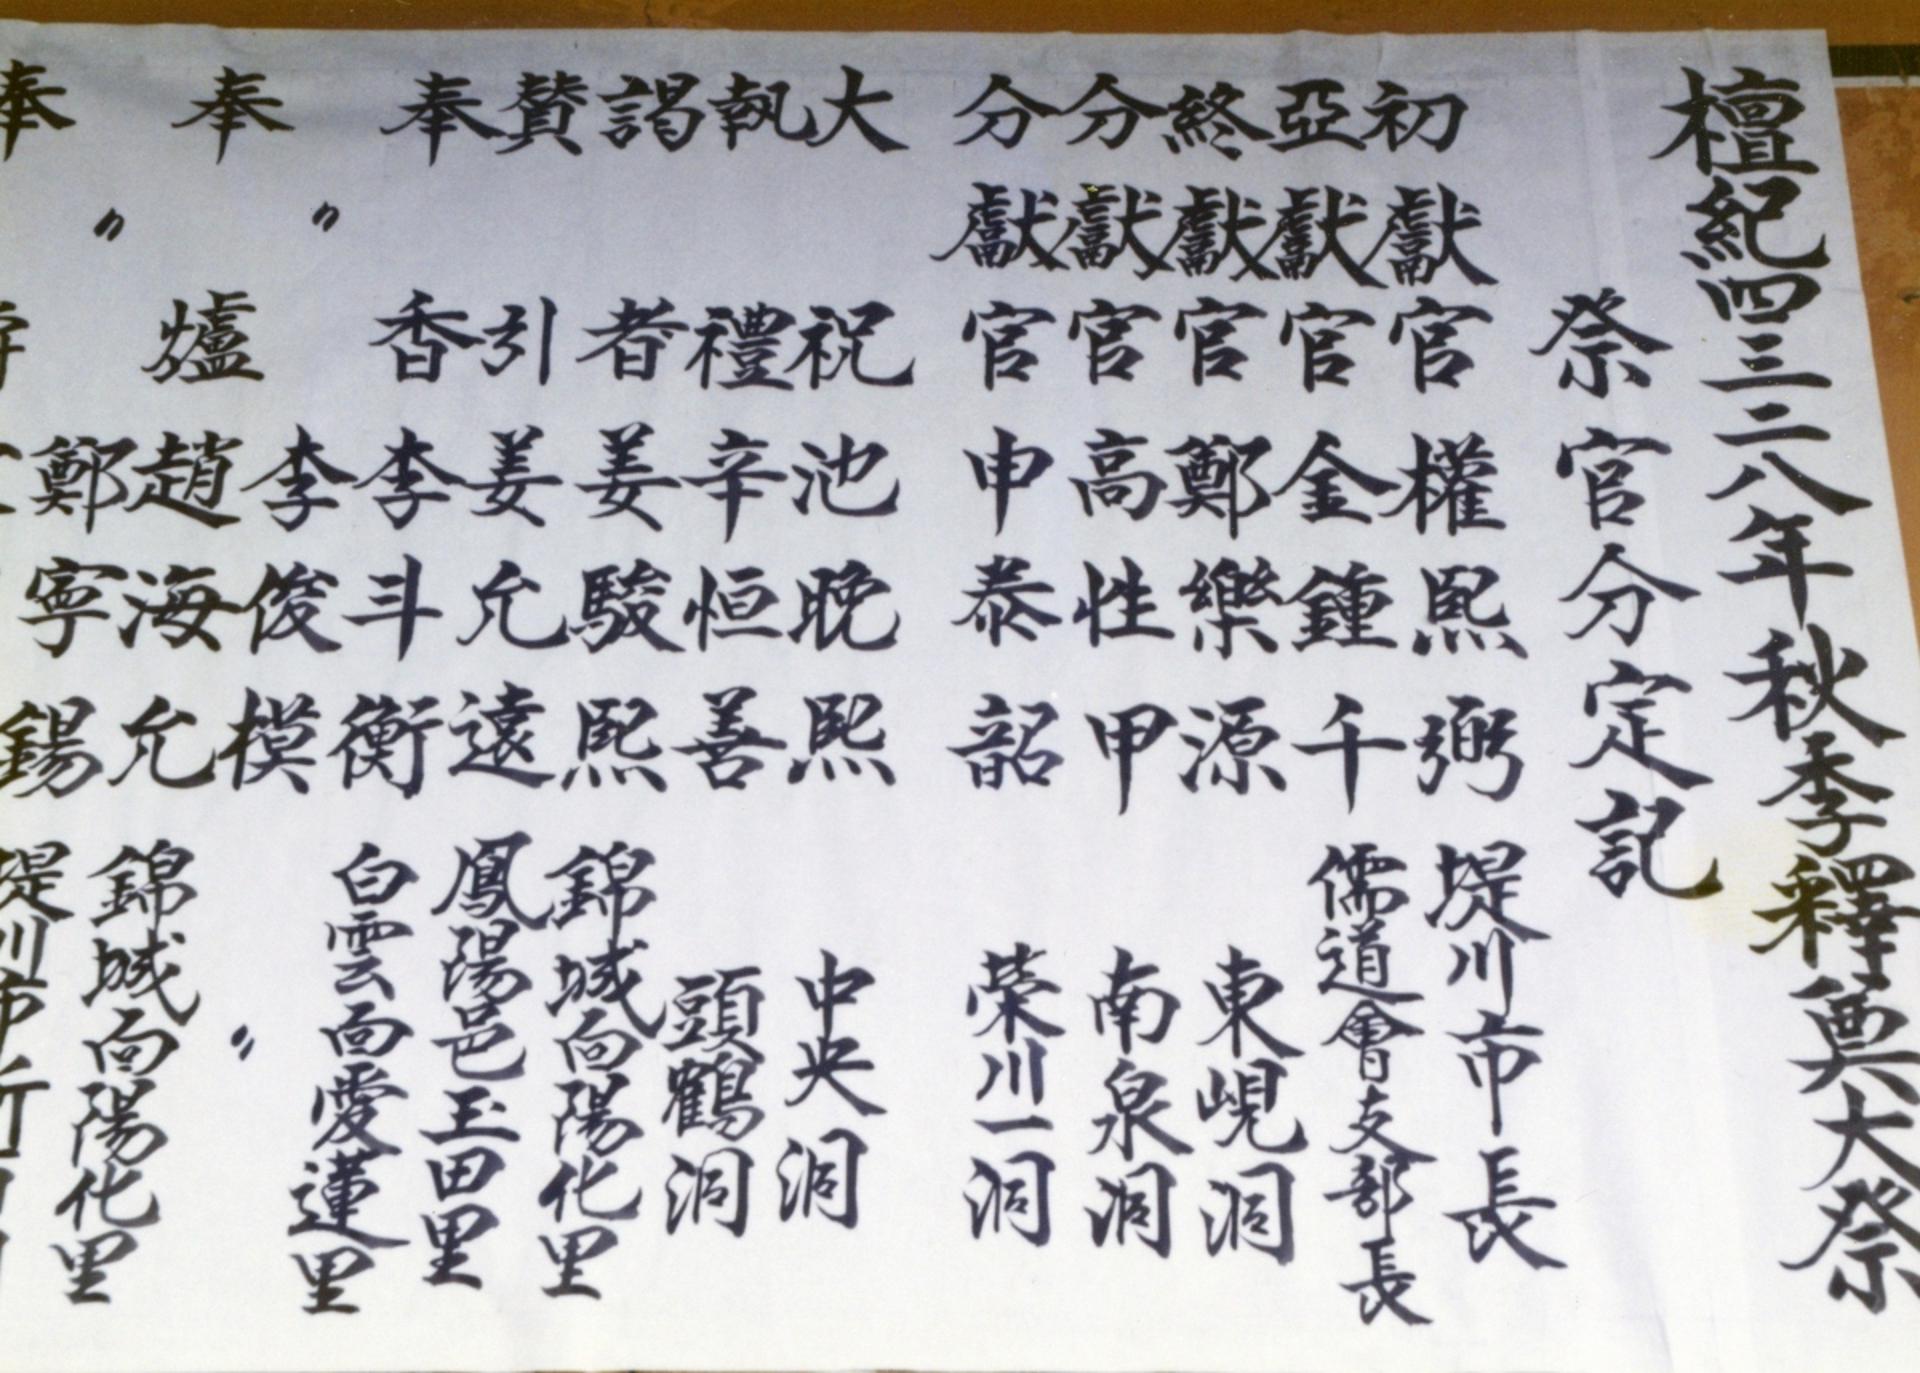 檀紀四三二八年秋季釋奠大祭
祭官分定記
初獻官 權熙弼 堤川市長
亞獻官 金鍾千 儒道會支部長
終獻官 鄭樂源 東峴洞
分獻官 高性甲 南泉洞
分獻官 申泰韶 榮川一洞
大祝 池晚熙 中央洞
執禮 辛恒善 頭鶴洞
謁者 姜駿熙 錦城面陽化里
贊引 姜允遠 鳳陽邑玉田里
奉香 李斗衡 白雲面愛蓮里
〃 李俊模 〃
奉爐 趙海允 錦城面陽化里
〃 鄭寧錫 堤川市
奉